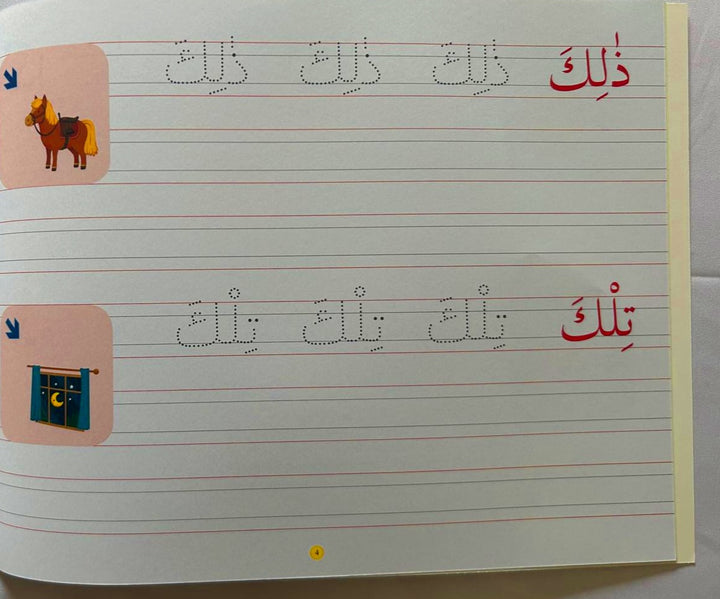 ذٰلِكَ ذٰلِكَ ذٰلِكَ ذٰلِكَ
تِلْكَ تِلْكَ تِلْكَ تِلْكَ
4